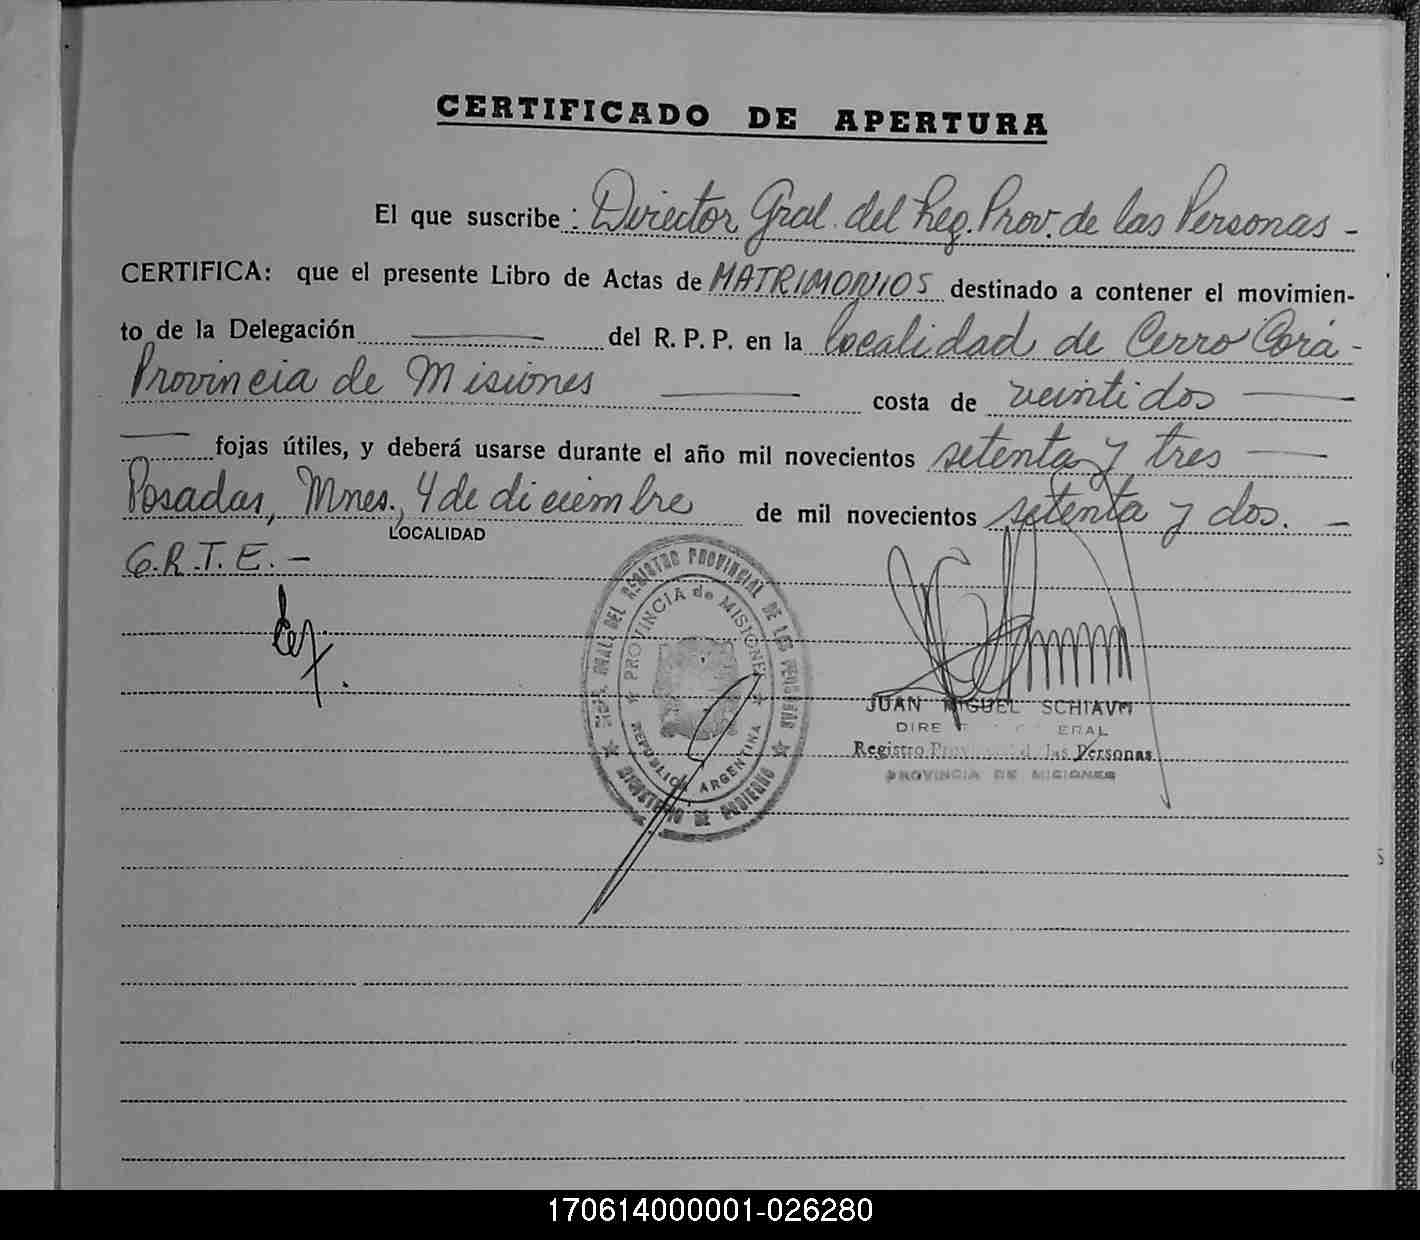 CERTIFICADO DE APERTURA
El que suscribe: Director Gral. del Reg. Prov. de las Personas -
CERTIFICA: que el presente Libro de Actas de MATRIMONIOS destinado a contener el movimien-
to de la Delegación ——— del R. P. P. en la localidad de Cerro Corá -
Provincia de Misiones ——— costa de veintidos ———
——— fojas útiles, y deberá usarse durante el año mil novecientos setenta y tres ———
Posadas, Mnes., 4 de diciembre de mil novecientos setenta y dos. -
LOCALIDAD
G.R.T.E. -
DEL REGISTRO PROVINCIAL DE LAS PERSONAS
PROVINCIA de MISIONES
REPUBLICA ARGENTINA
MINISTERIO DE GOBIERNO
JUAN MIGUEL SCHIAVI
Registro Provincial de las Personas
PROVINCIA DE MISIONES
170614000001-026280